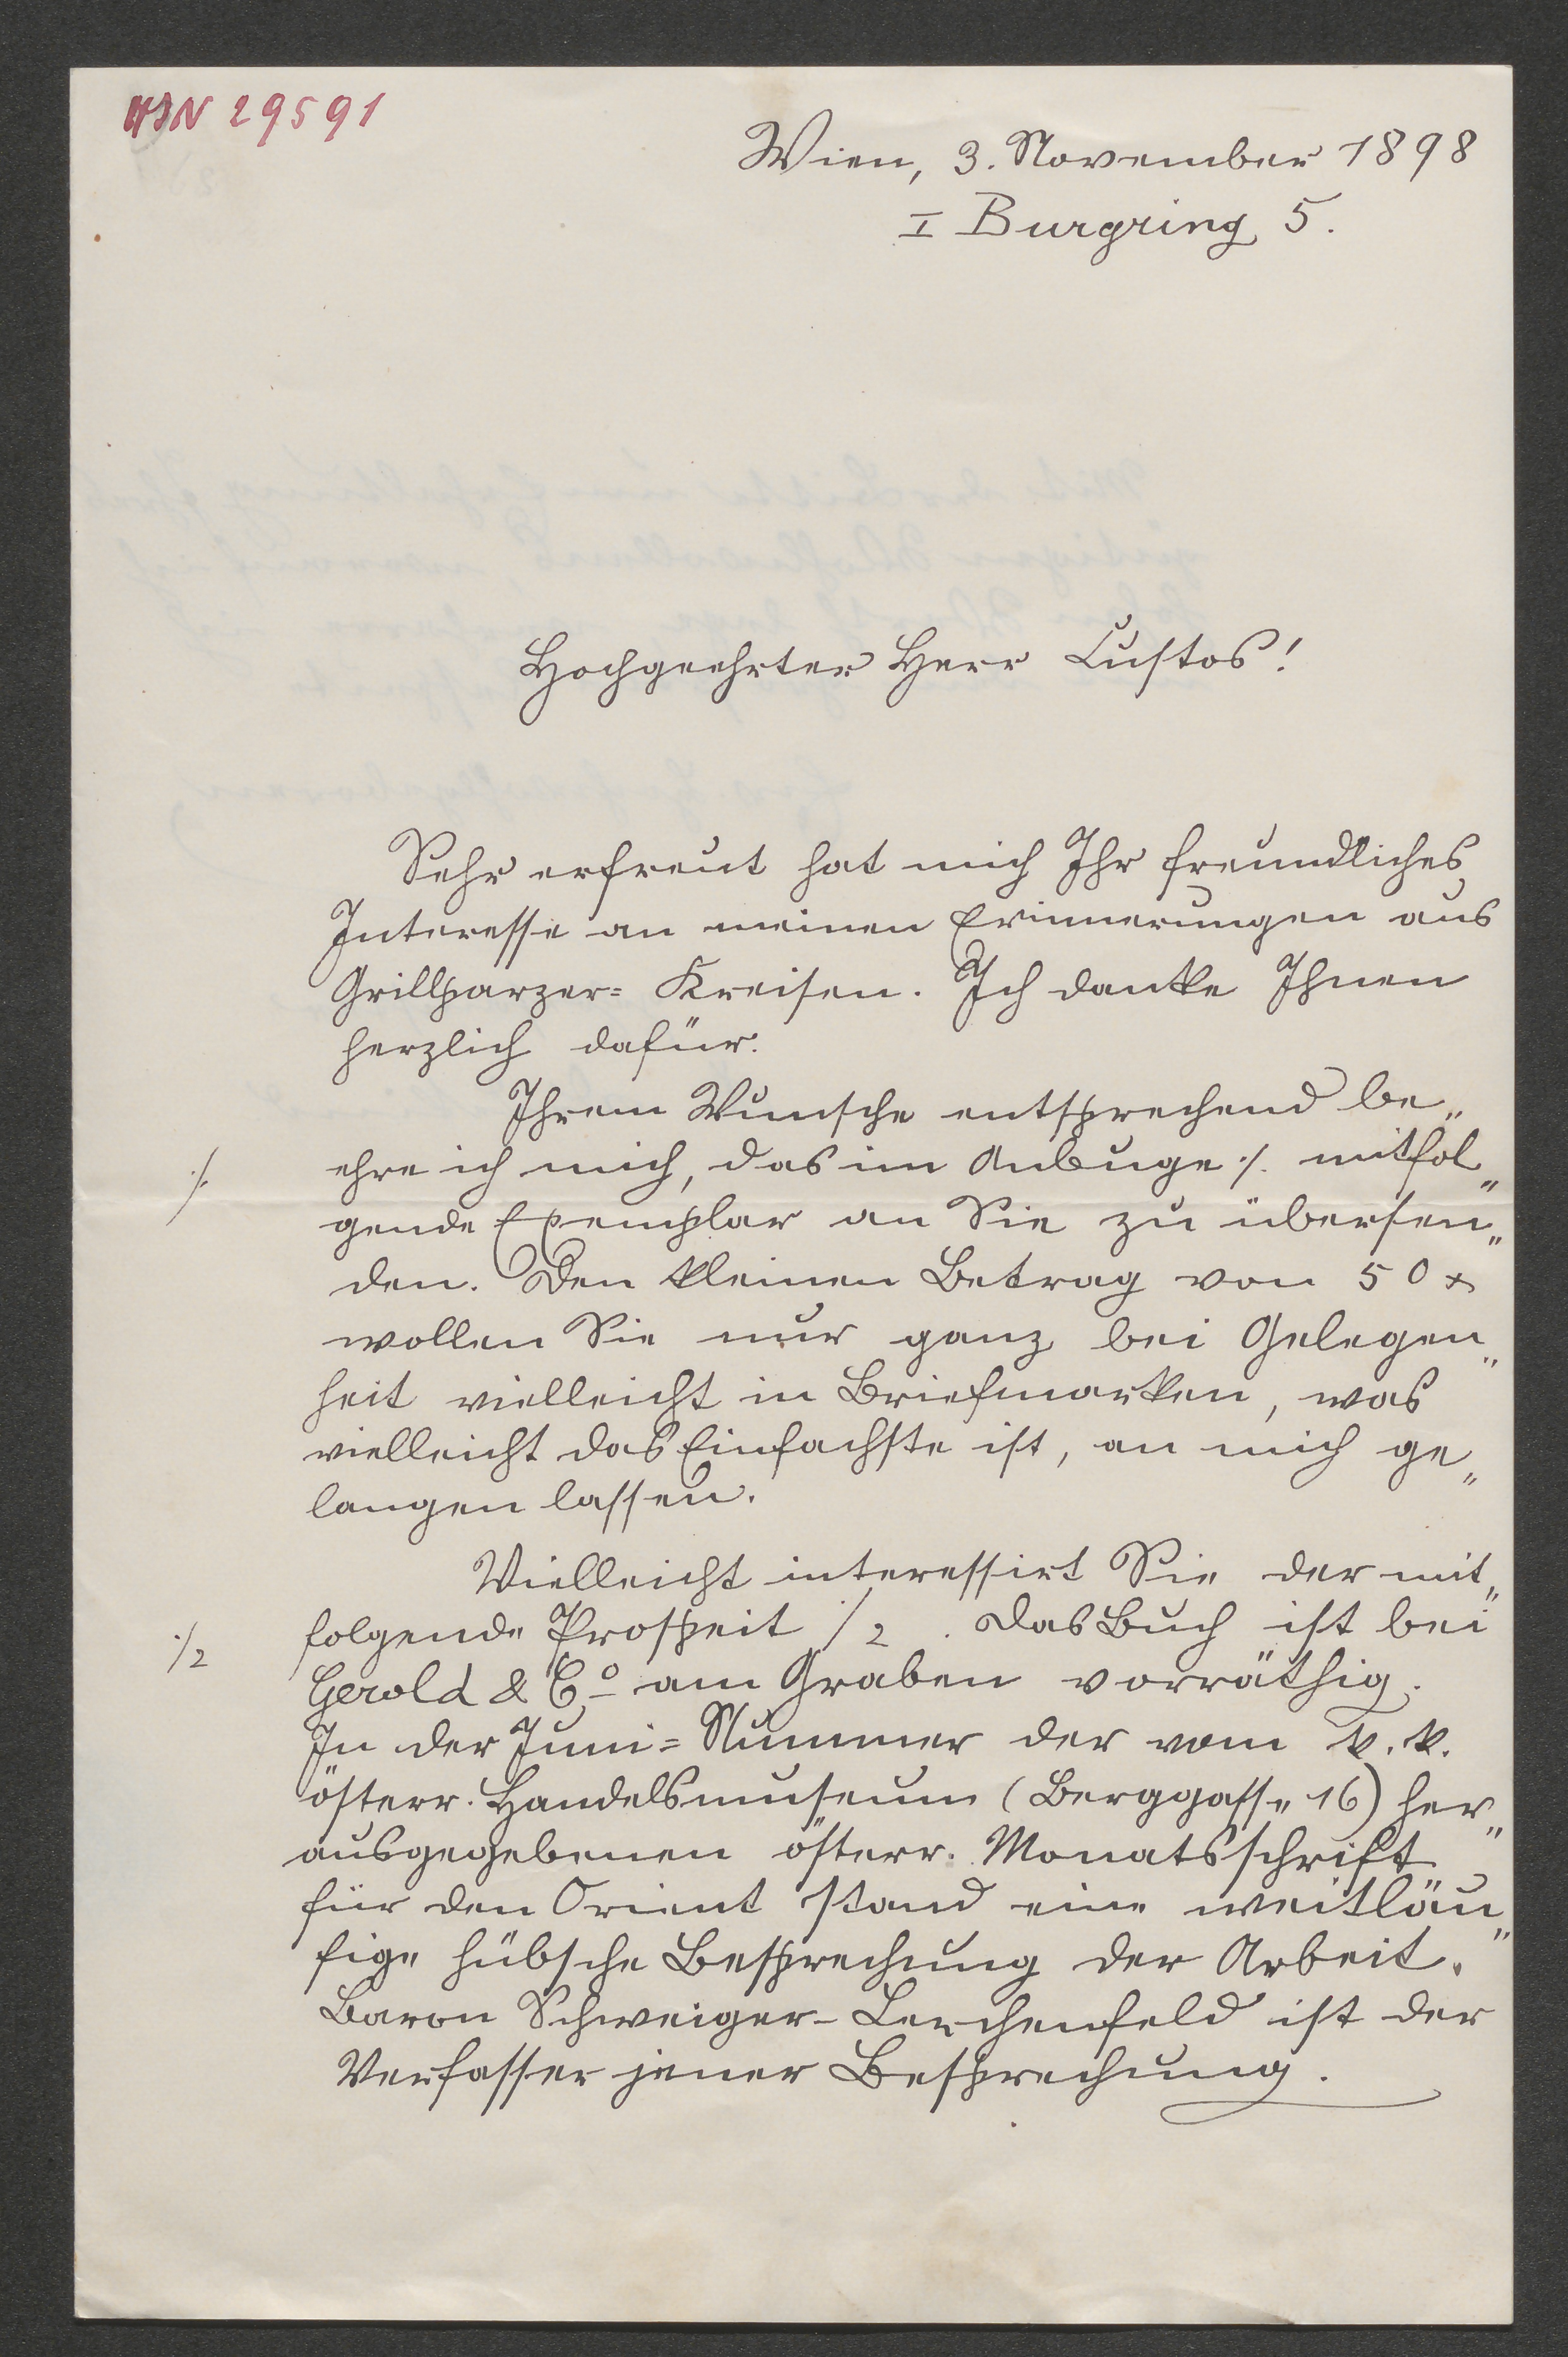 HIN 29591
Wien, 3. November 1898
I Burgring 5.
Hochgeehrter Herr Custos!
Sehr erfreut hat mich Ihr freundliches
Interesse an meinen Erinnerungen aus
Grillparzer= Kreisen. Ich danke Ihnen
herzlich dafür.
Ihrem Wunsche entsprechend be„
./. ehre ich mich, das im Anbuge ./. mitfol„
gende Exemplar an Sie zu übersen„
den. Den kleinen Betrag von 50 x
wollen Sie nur ganz bei Gelegen„
heit vielleicht in Briefmarken, was
vielleicht das Einfachste ist, an mich ge„
langen lassen.
Vielleicht interessirt Sie der mit„
./2 folgende Prospeit ./2. Das Buch ist bei
Gerold & Co am Graben vorräthig.
In der Juni=Nummer der vom k. k.
österr. Handelsmuseum (Berggasse 16) her„
ausgegebenen österr. Monatsschrift
für den Orient stand eine weitläu„
fige hübsche Besprechung der Arbeit.
Baron Schweiger-Lerchenfeld ist der
Verfasser jener Besprechung.